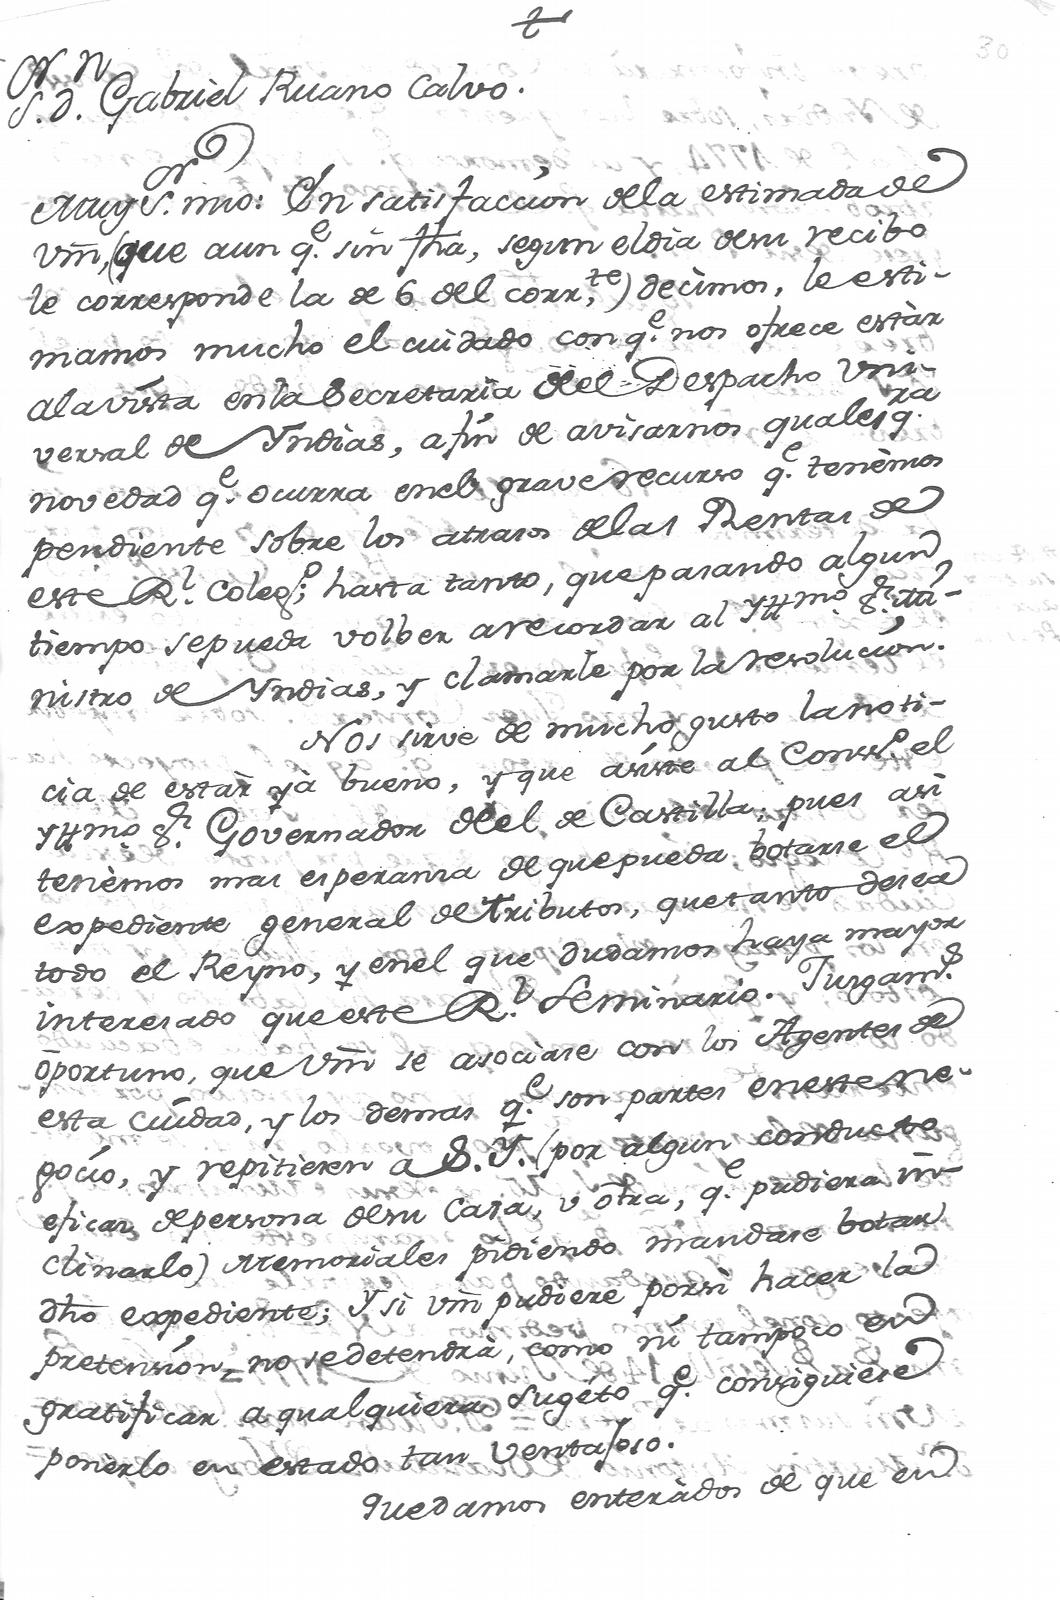 30
S.r D.n Gabriel Ruano Calvo.
Muy S.r mio: En satisfaccion dela estimada de
Vm̃, (que aun q.e sin fha, segun eldia desu recibo
le corresponde la de 6 del corr.te) decimos, le esti-
mamos mucho el cuidado con q.e nos ofrece estàr
ala vista enla Secretaria del Despacho Vni-
versal de Yndias, afin de avisarnos qualesq.ra
novedad q.e ocurra enel grave recurso q.e tenèmos
pendiente sobre los atrasos delas Rentas de
este R.l Coleg.o; hasta tanto, que pasando algun
tiempo sepueda volber a recordar al Yttmo S.r Mi-
nistro de Yndias, y clamarle por la resolucion.
Nos sirve de mucho gusto la noti-
cia de estàr yà bueno, y que asiste al Conss.o el
Yttmo S.r Governador del de Castilla; pues asi
tenèmos mas esperanza de que pueda botarse el
expediente general de tributos, que tanto desea
todo el Reyno, y enel que dudamos haya mayor
interesado que este R.l Seminario. Juzgam.s
oportuno, que Vm̃ se asociase con los Agentes de
esta ciudad, y los demas q.e son partes eneste ne-
gocio, y repitieren a S. Y. (por algun conducto
eficaz depersona desu Casa, v otra, q.e pudiera in-
clinarlo) Memoriales pidiendo mandase botar
dho expediente; y si Vm̃ pudiere porsi hacer la
pretension, no sedetendrà, como ni tampoco en
gratificar a qualquiera sugeto q.e consiguiese
ponerlo en estado tan ventajoso.
Quedamos enteràdos de que en